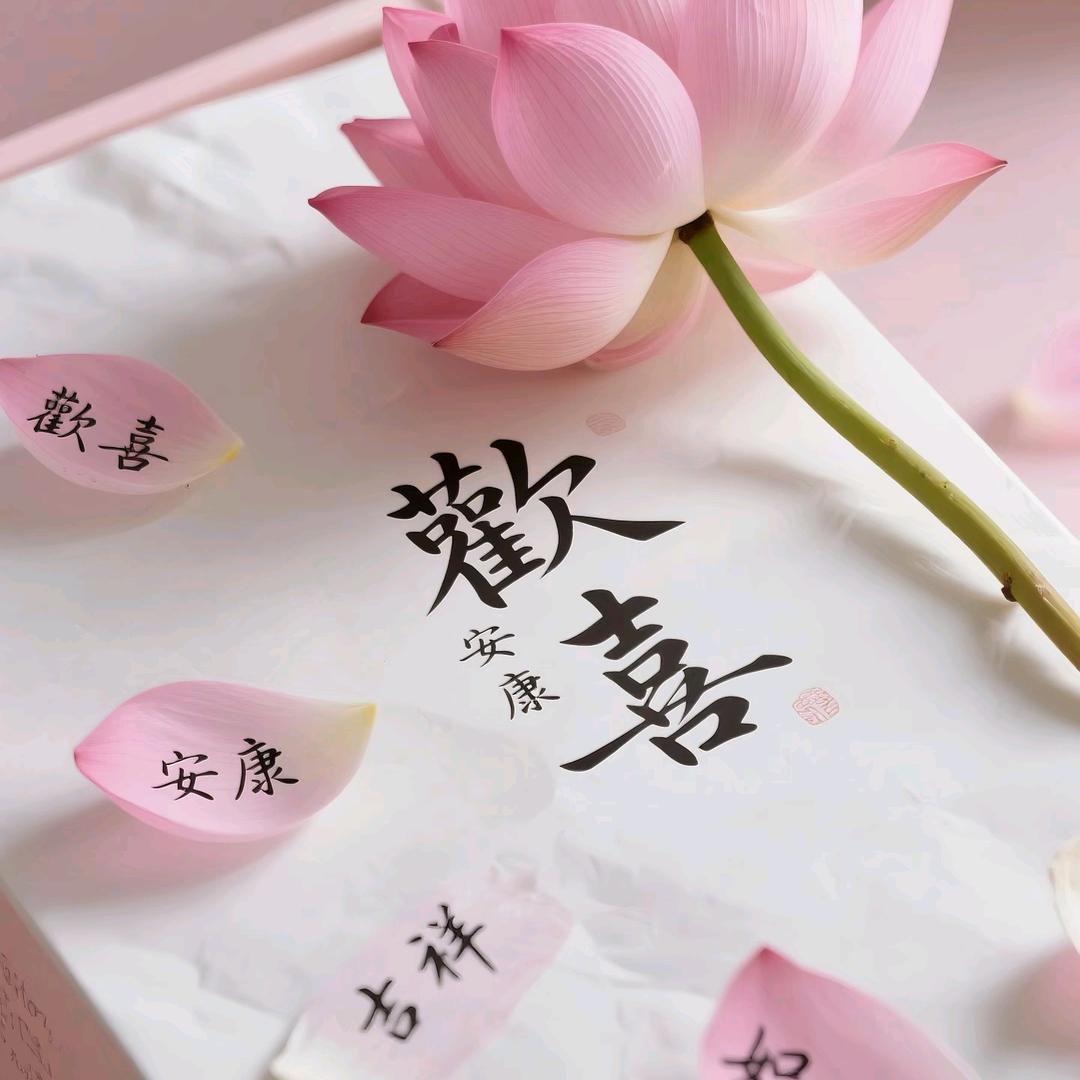 歡喜
歡
喜
安
康
安康
吉祥
如